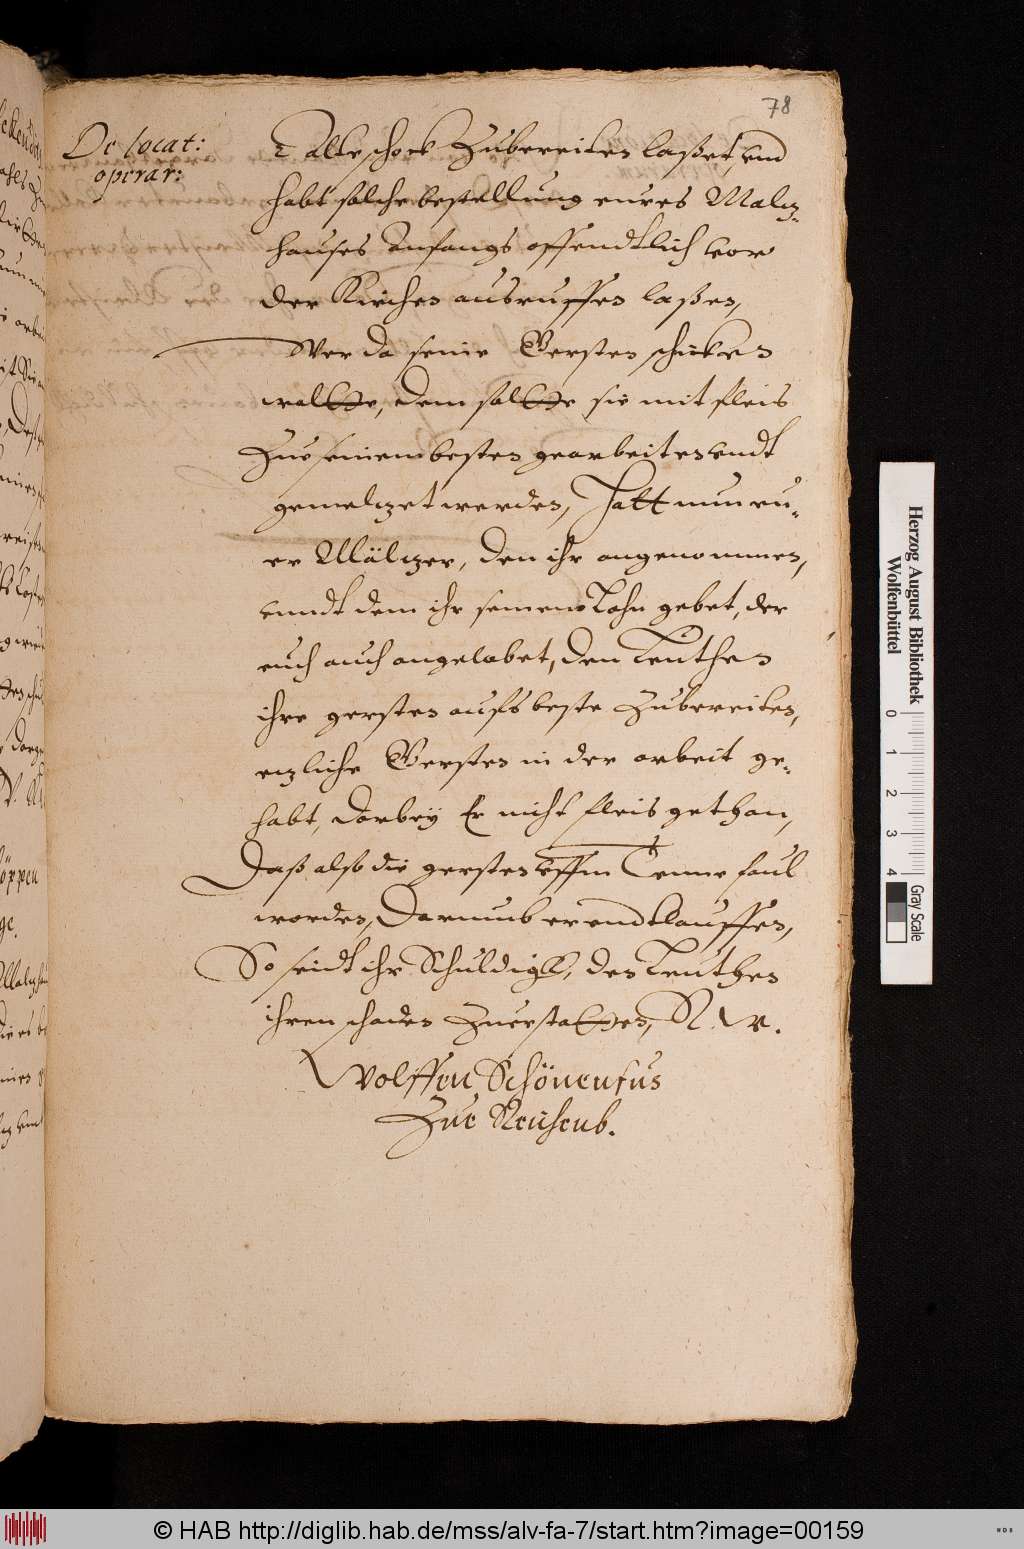 78
De locat:
operar:
2 alte schock Zubereiten laßet, vnd
habt solche bestellung eures Maltz-
hauses Anfangs offendtlich vor
der Kirchen ausruffen laßen,
Wer da seine Gersten schicken
wolte, dem solte sie mit fleis
Zue seinem besten gearbeitet vndt
gemeltzet werden, Hatt nun eu-
er Mältzer, den ihr angenommen,
vnndt dem ihr seinen Lohn gebet, der
euch auch angelobet, den Leuthen
ihre gersten aufs beste Zubereiten,
etzliche Gersten in der arbeit ge-
habt, dorbeÿ Er nicht fleis gethan,
Daß also die gersten vffm Tenne faul
worden, Darumb er endtlauffen,
So seidt ihr Schuldigk, den Leuthen
ihren schaden Zuerstatten, V. R. W.
Wolffen Schönenfus
Zue
Herzog August Bibliothek
Wolfenbüttel
0 1 2 3 4
Gray Scale
© HAB http://diglib.hab.de/mss/alv-fa-7/start.htm?image=00159